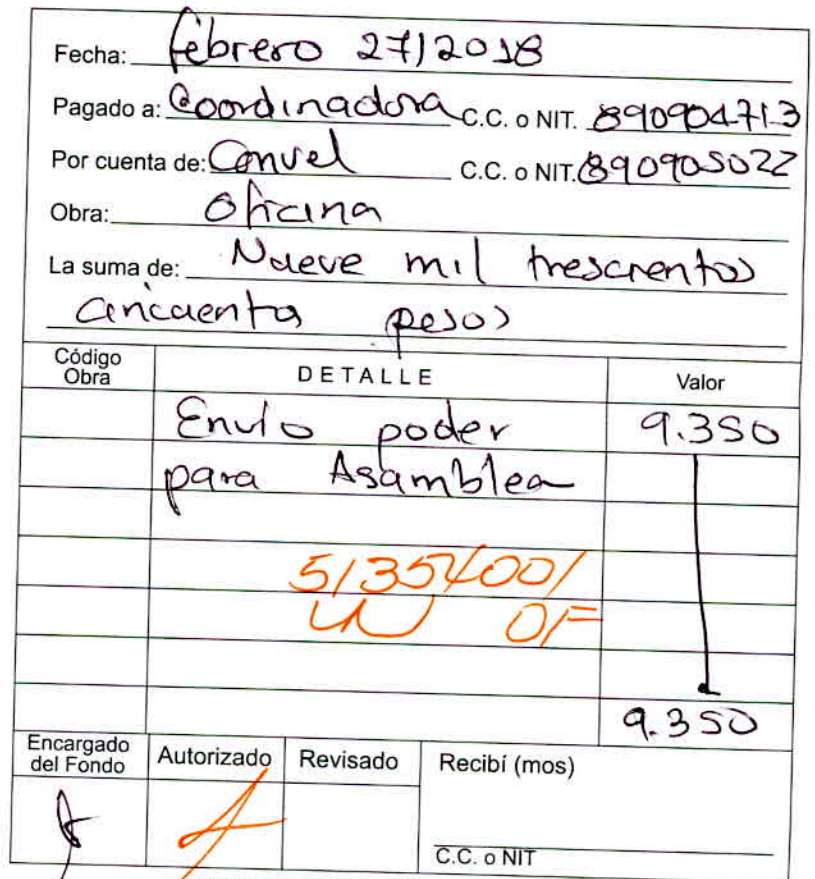 Fecha: febrero 27/2018
Pagado a: Coordinadora C.C. o NIT. 890904713
Por cuenta de: Convel C.C. o NIT. 890905022
Obra: Oficina
La suma de: Nueve mil trescientos
cincuenta pesos
Código Obra DETALLE Valor
Envío poder 9.350
para Asamblea
51354001
OF
9.350
Encargado del Fondo Autorizado Revisado Recibí (mos)
C.C. o NIT